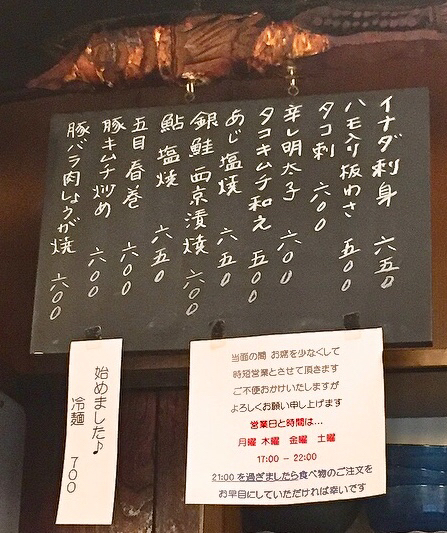 イナダ刺身 六五〇
ハモ入り板わさ 五〇〇
タコ刺 六〇〇
辛し明太子 六〇〇
タコキムチ和え 五〇〇
あじ塩焼 六五〇
銀鮭西京漬焼 六〇〇
鮎塩焼 六五〇
五目春巻 六〇〇
豚キムチ炒め 六〇〇
豚バラ肉しょうが焼 六〇〇
始めました♪
冷麺 700
当面の間 お席を少なくして
時短営業とさせて頂きます
ご不便おかけいたしますが
よろしくお願い申し上げます
営業日と時間は…
月曜 木曜 金曜 土曜
17:00 – 22:00
21:00 を過ぎましたら食べ物のご注文を
お早目にしていただければ幸いです